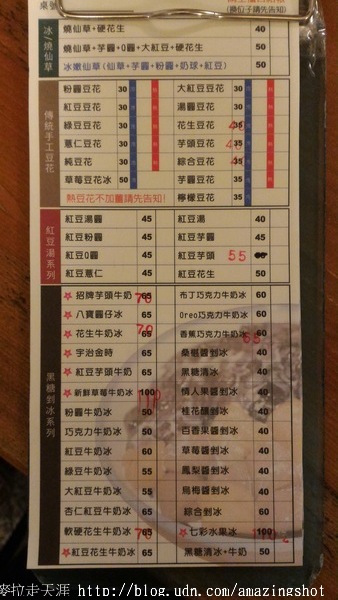 桌號
(換位子請先告知)
冰/燒仙草
燒仙草+硬花生 40
燒仙草+芋圓+Q圓+大紅豆+硬花生 50
冰嫩仙草(仙草+芋圓+粉圓+奶球+紅豆) 50
傳統手工豆花
粉圓豆花 30 大紅豆豆花 35
紅豆豆花 30 湯圓豆花 35
綠豆豆花 30 花生豆花 35
薏仁豆花 30 芋頭豆花 35
純豆花 30 綜合豆花 35
草莓豆花冰 50 芋圓豆花 35
熱豆花不加薑請先告知! 檸檬豆花 35
紅豆湯系列
紅豆湯圓 45 紅豆湯 40
紅豆粉圓 45 紅豆芋圓 45
紅豆Q圓 45 紅豆芋頭 55
紅豆薏仁 45 紅豆花生 50
黑糖剉冰系列
招牌芋頭牛奶 65 70 布丁巧克力牛奶冰 60
八寶圓仔冰 65 Oreo巧克力牛奶冰 60
花生牛奶冰 65 70 香蕉巧克力牛奶冰 60 65
宇治金時 65 桑椹醬剉冰 40
紅豆芋頭牛奶 65 黑糖清冰 40
新鮮草莓牛奶冰 100 情人果醬剉冰 40
粉圓牛奶冰 50 桂花釀剉冰 40
巧克力牛奶冰 50 百香果醬剉冰 40
紅豆牛奶冰 60 草莓醬剉冰 40
綠豆牛奶冰 55 鳳梨醬剉冰 40
大紅豆牛奶冰 55 烏梅醬剉冰 40
杏仁紅豆牛奶冰 65 綜合剉冰 60
軟硬花生牛奶冰 65 七彩水果冰 100
紅豆花生牛奶冰 65 黑糖清冰+牛奶 50
麥拉走天涯 http://blog.udn.com/amazingshot